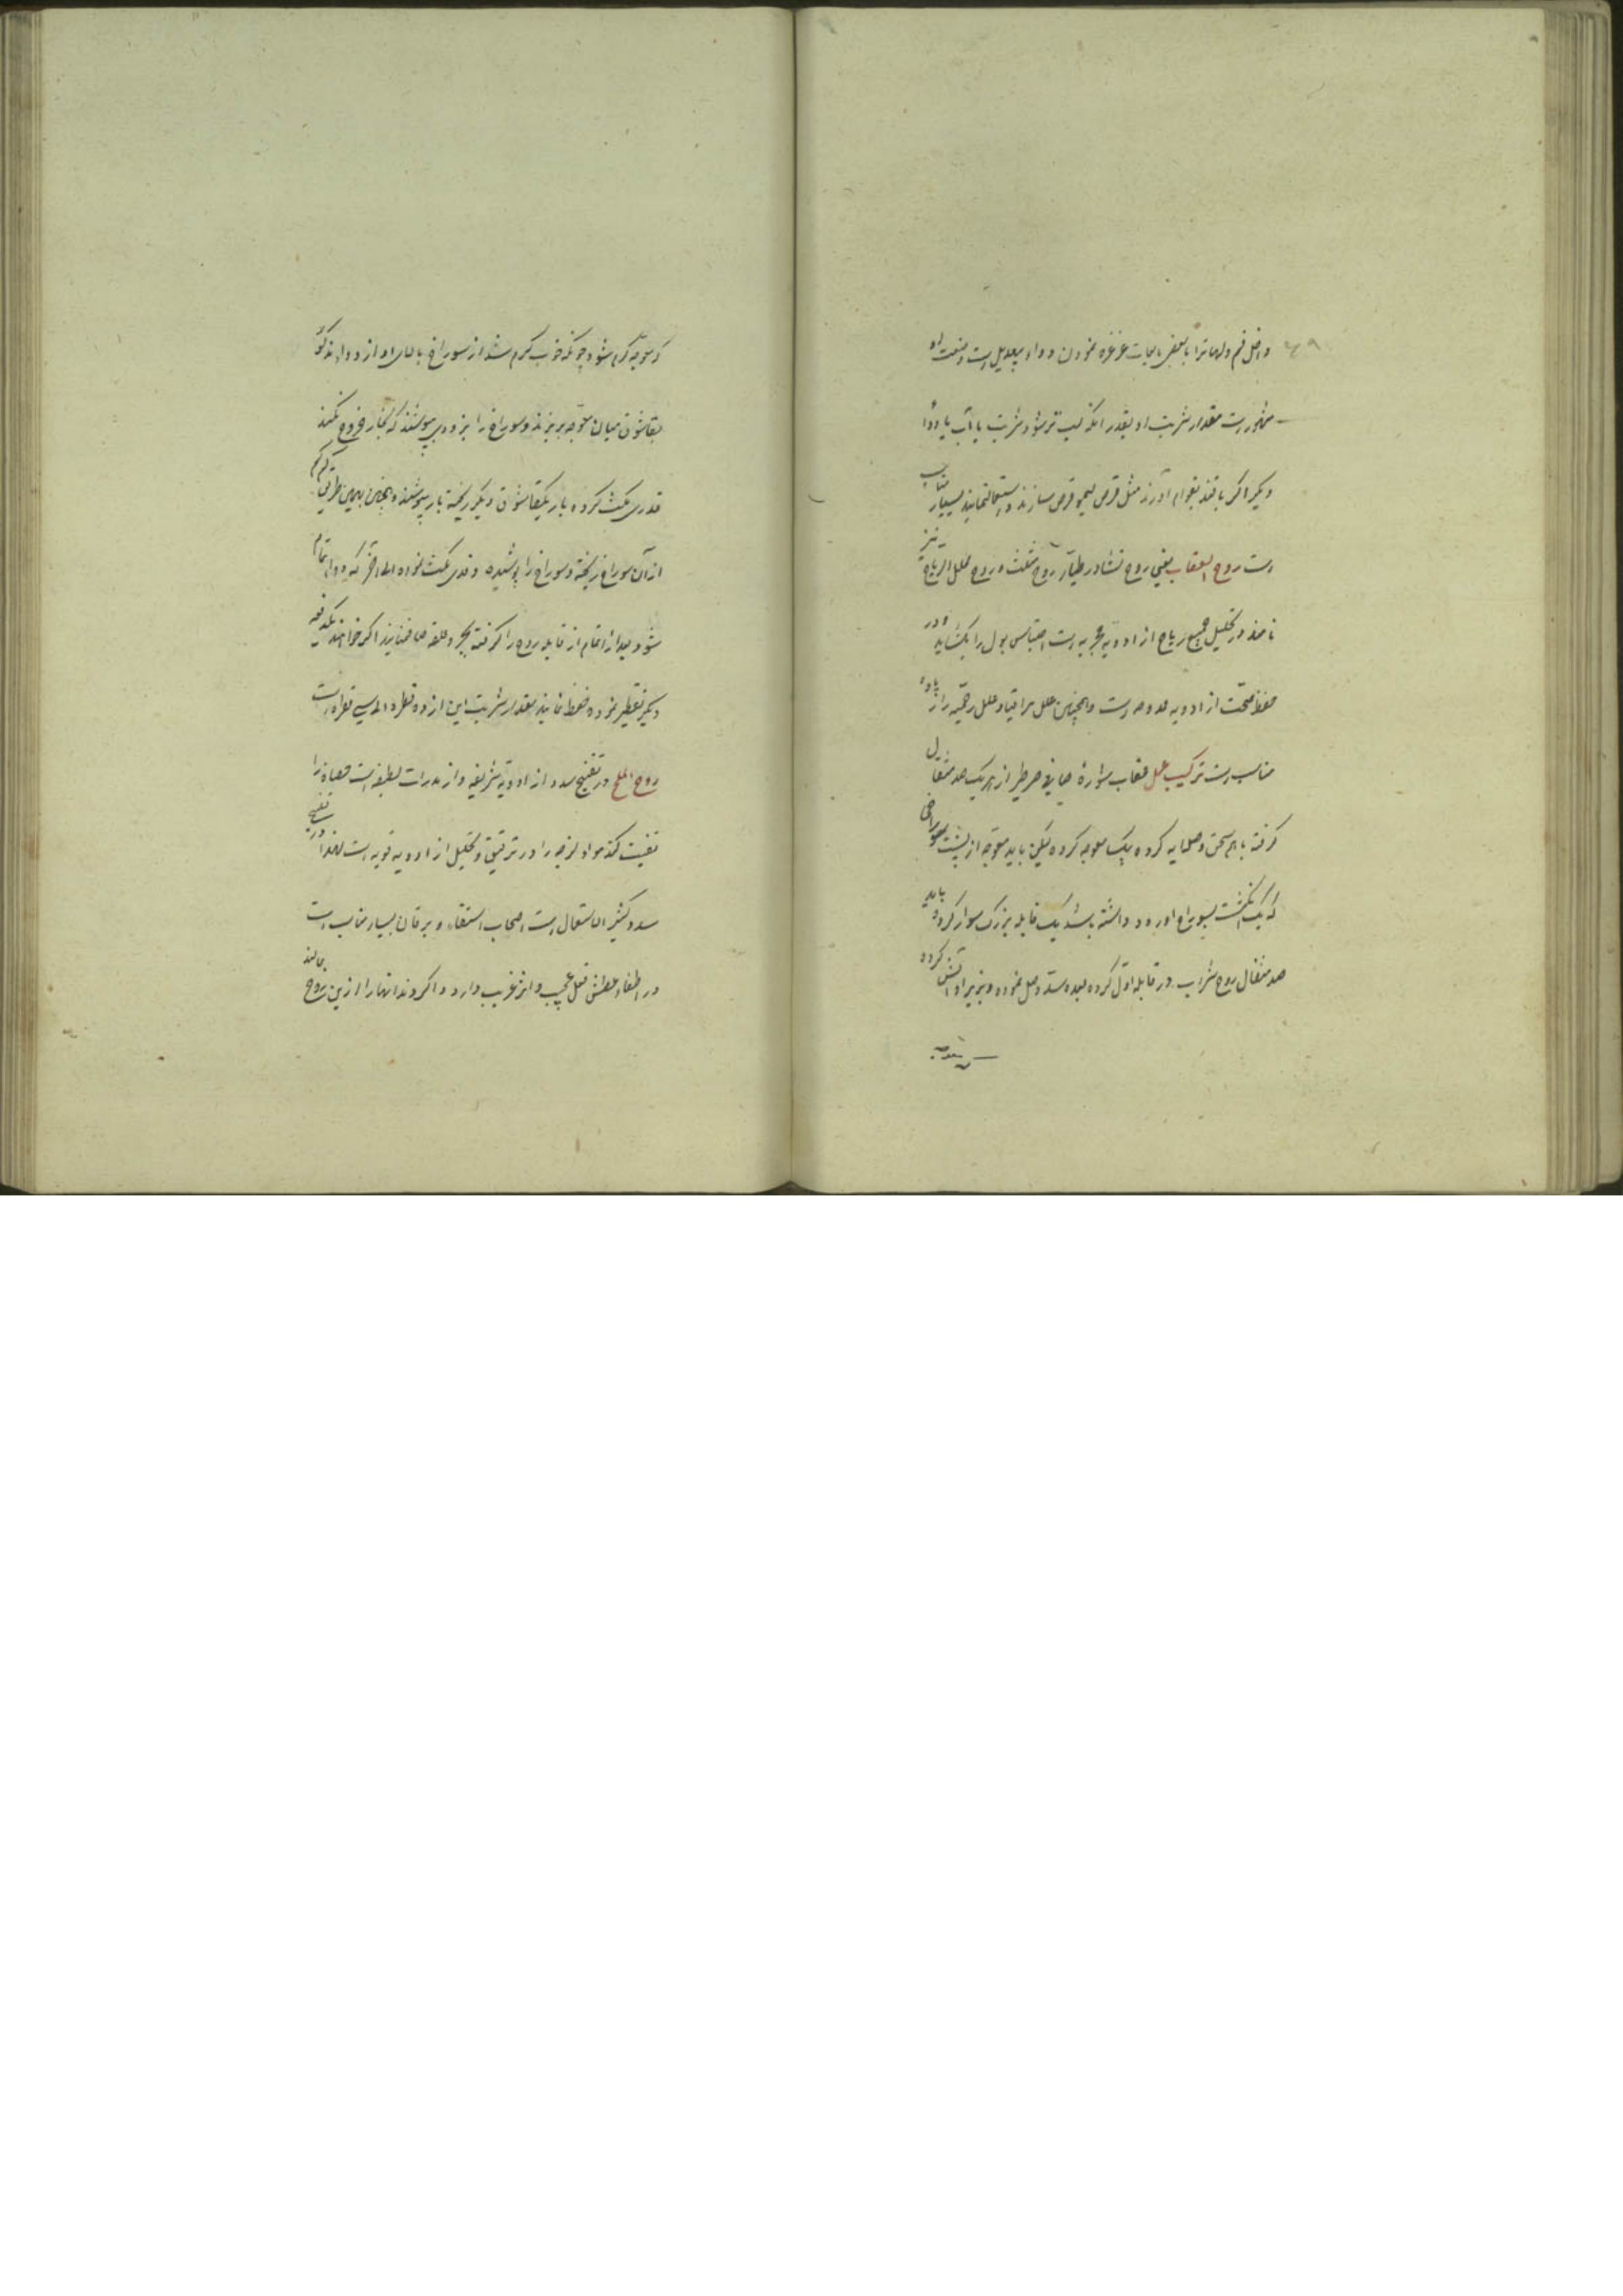 ۴۹
داخل فم و لهاترا با بعض میاه غرغره نمودن دواء بیعدیل است و منفعت او
مشهور است مقدار شربت او بقدر آنکه لب ترش شود شربت یا آب یا دواء
دیگر اگر با قند بقوام آورند مثل قرص لیمو قرص سازند و استعمال نمایند بسیار مناسب
است روح العقاب یعنی روح نشادر طیّار روح مثلث و روح محلل الریاح نیز
نامند در تحلیل جمیع ریاح از ادویه مجربه است احتباس بول را بگشاید و در
حفظ صحّت از ادویه ممدوحه است و همچنین علل مراقیا و علل رحمیه را زیاده
مناسب است ترکیب عمل عقاب شوارهٔ صافی طرطیر از هر یک صد مثقال
گرفته با هم سحق و صلایه کرده بیک معوجه کرده لیکن باید معوجه از پشت سوراخی
که یک انگشت بسوراخ او رود داشته باشد یک قابله بزرگ سوار کرده باید
صد مثقال روح شراب در قابله اول کرده بعده سد وصل نموده و بزیر او آتش کرده
که معوجه گرم شود چونکه خوب گرم شد از سوراخ بالای او از دواء مذکور
بقاشوق میان معوجه بریزند و سوراخ را بزودی بپوشند که بخار خروج نکند
قدری مکث کرده باز یکقاشوق دیگر ریخته باز بپوشند و همچنین بهمین طریق کم کم
از آن سوراخ ریخته و سوراخ را پوشیده و قدری مکث نموده الی آخر که دواء تمام
شود بعد از اتمام از قابله روح را گرفته بجهر و علقه صاف نمایند اگر خواهند یکدفعه
دیگر تقطیر نموده حفظ نمایند مقدار شربت این از ده قطره الی سی قطره است
روح الملح در تفتیح سدد از ادویه شریفه و از مدرات لطیفه است حصاة را
تفتیت کند مواد لزجه را در ترقیق و تحلیل از ادویه قویه است لهذا در تفتیح
سدد کثیر الاستعمال است اصحاب استسقاء و یرقان بسیار مناسب است
در اطفاء عطش فعل عجیب و اثر غریب دارد و اگر دندانها را ازین روح بمالند